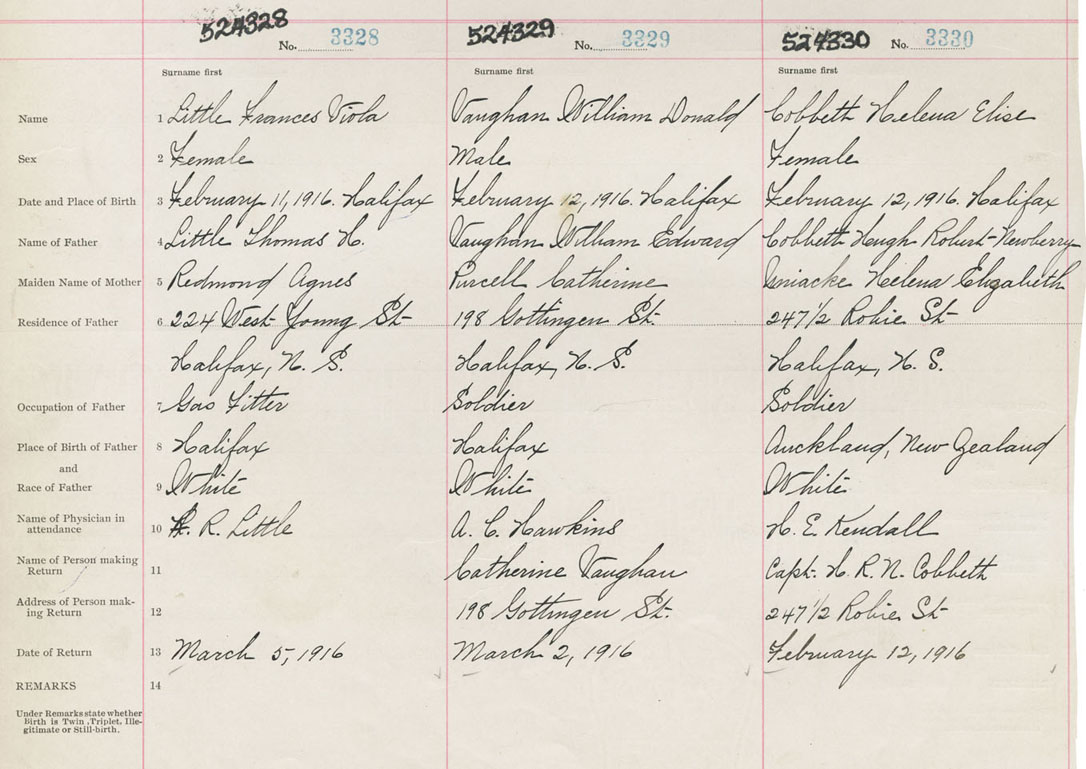 524328 No. 3328 524329 No. 3329 524330 No. 3330
Surname first Surname first Surname first
Name 1 Little Frances Viola Vaughan William Donald Cobbeth Helena Elise
Sex 2 Female Male Female
Date and Place of Birth 3 February 11, 1916. Halifax February 12, 1916. Halifax February 12, 1916. Halifax
Name of Father 4 Little Thomas H. Vaughan William Edward Cobbeth Hugh Robert-Newberry
Maiden Name of Mother 5 Redmond Agnes Purcell Catherine Uniacke Helena Elizabeth
Residence of Father 6 224 West Young St. 198 Gottingen St. 247 1/2 Robie St.
Halifax, N. S. Halifax, N. S. Halifax, N. S.
Occupation of Father 7 Gas Fitter Soldier Soldier
Place of Birth of Father 8 Halifax Halifax Auckland, New Zealand
and
Race of Father 9 White White White
Name of Physician in
attendance 10 R. Little A. C. Hawkins H. E. Kendall
Name of Person making
Return 11 Catherine Vaughan Capt. H. R. N. Cobbeth
Address of Person mak-
ing Return 12 198 Gottingen St. 247 1/2 Robie St
Date of Return 13 March 5, 1916 March 2, 1916 February 12, 1916
REMARKS 14
Under Remarks state whether
Birth is Twin, Triplet, Ille-
gitimate or Still-birth.